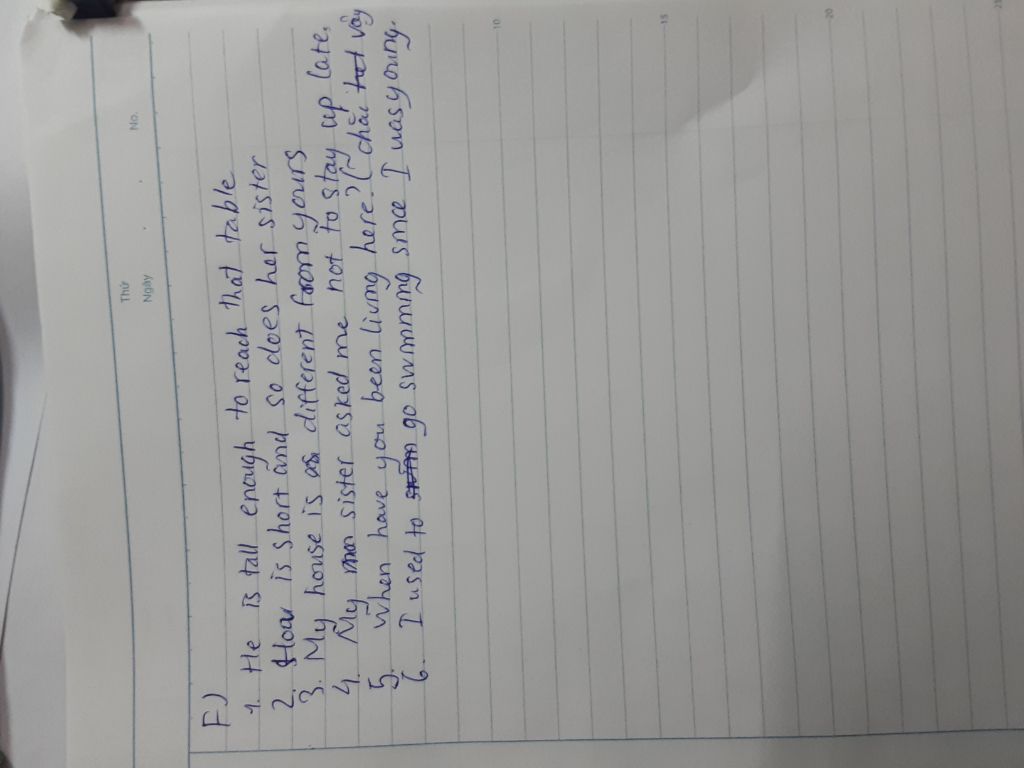 Thứ
Ngày
No.
F)
1. He is tall enough to reach that table
2. Hoa is short and so does her sister
3. My house is different from yours
4. My sister asked me not to stay up late.
5. When have you been living here? (chắc vậy
6. I used to go swimming since I was young.
10
15
20
25